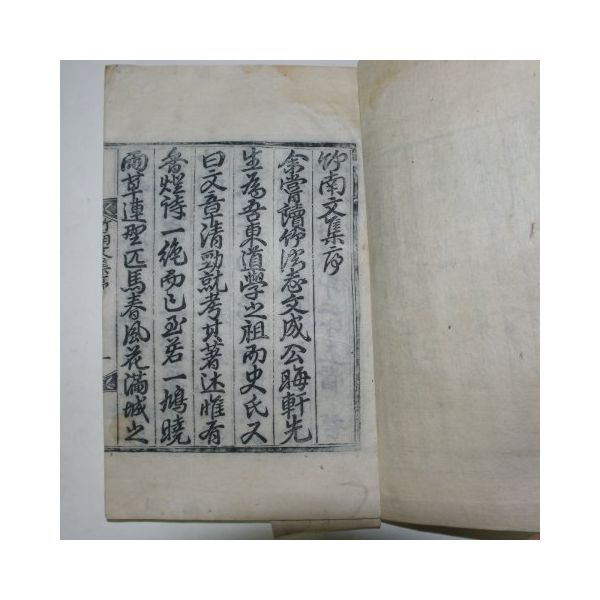 竹南文集序
余嘗讀竹溪志文成公晦軒先
生爲吾東道學之祖而史氏又
曰文章清勁就考其著述惟有
香燈詩一絶而已至若一鳩曉
雨草連野匹馬春風花滿城之
竹南文集序 一